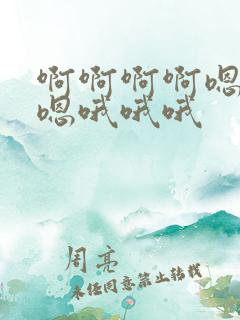 啊啊啊啊嗯
嗯哦哦哦
周亮
未经同意禁止转载